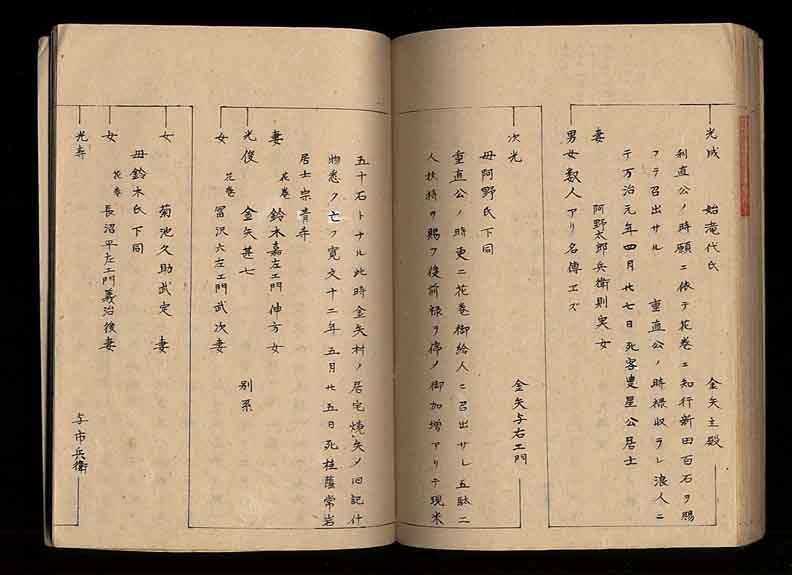 光成 始滝代氏 金矢主殿
利直公ノ時願ニ依テ花巻ニ知行新田百石ヲ賜
フテ召出サル 重直公ノ時禄収ラレ浪人ニ
テ万治元年四月廿七日死客叟星公居士
妻 阿野太郎兵衛則実女
男女数人アリ名傳エズ
次光 金矢与右エ門
母阿野氏下同
重直公ノ時更ニ花巻御給人ニ召出サレ五駄二
人扶持ヲ賜フ後前禄ヲ停メ御加増アリテ現米
五十石トナル此時金矢村ノ居宅焼矢ノ旧記什
物悉ク亡フ寛文十二年五月廿五日死桂蔭常岩
居士宗青寺
妻 花巻 鈴木嘉左エ門伸方女
光俊 金矢甚七 別系
女 花巻 冨沢六左エ門武次妻
女 菊池久助武定 妻
母鈴木氏下同
女 花巻 長沼平左エ門義治後妻
光寿 与市兵衛